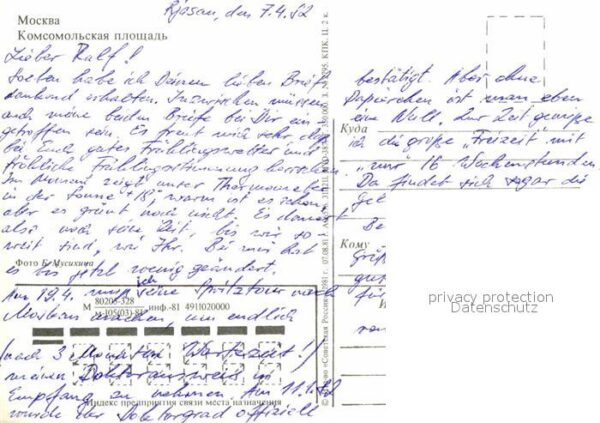 Rjasan, den 7.4.82
Москва
Комсомольская площадь
Lieber Ralf!
Soeben habe ich Deinen lieben Brief
dankend erhalten. Inzwischen müssen
auch meine beiden Briefe bei Dir ein-
getroffen sein. Es freut mich sehr, daß
bei Euch gutes Frühlingswetter und
fröhliche Frühlingsstimmung herrschen.
Im Moment zeigt unser Thermometer
in der Sonne +18, warm ist es schon,
aber es grünt noch nicht. Es dauert
also noch seine Zeit, bis wir so-
weit sind, wie Ihr. Bei mir hat
Фото Б. Мусихина
es bis jetzt wenig geändert.
Am 19.4. muß ich eine Spritztour nach
Moskau machen, um endlich
М 80205-328 инф.-81 4911020000
(nach 3 Monaten Wartezeit!)
meinen Doktorausweis in
Empfang zu nehmen. Am 11.1.82
Индекс предприятия связи места назначения
wurde der Doktorgrad offiziell
bestätigt. Aber ohne
Papierchen ist man eben
eine Null. Zur Zeit genieße
Куда
ich die große „Freizeit" mit
„nur" 16 Wochenstunden.
Da findet sich sogar die
Кому
für
privacy protection
Datenschutz